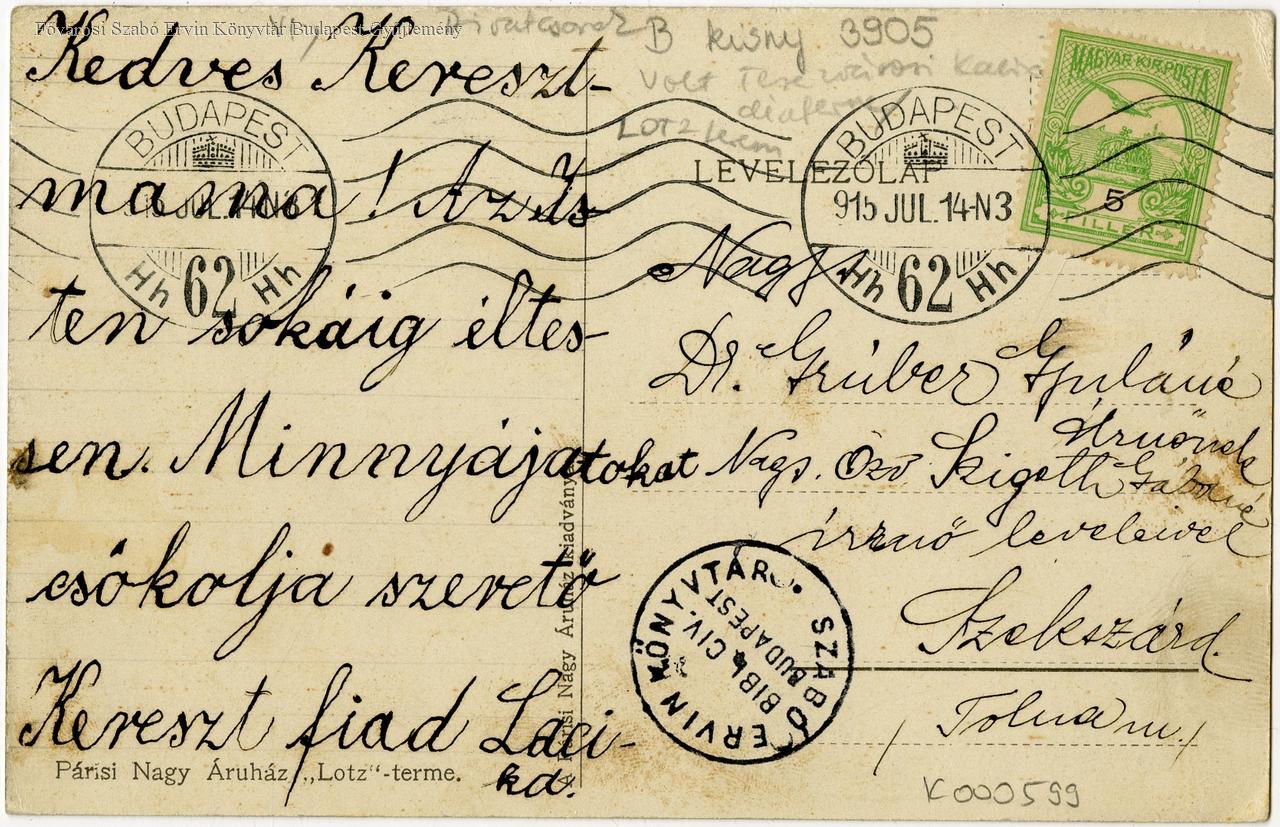 Fővárosi Szabó Ervin Könyvtár Budapest Gyűjtemény
B kisny 3905
Volt Terézvárosi
LOTZ terem
Kedves Kereszt-
mama! Az Is-
ten sokáig éltes-
sen. Minnyájatokat
csókolja szerető
Kereszt fiad Laci-
ka.
Párisi Nagy Áruház „Lotz“-terme.
A Párisi Nagy Áruház kiadványa
BUDAPEST
915 JUL.14-N3
Hh 62 Hh
LEVELEZŐLAP
BUDAPEST
915 JUL.14-N3
Hh 62 Hh
MAGYAR KIR. POSTA
5
FILLÉR
Nagys.
Dr. Grúber Gyuláné
Úrnőnek
Nags. Özv Szigeth Gáborné
úrnő leveleivel
Szekszárd.
/Tolna m./
SZABÓ ERVIN KÖNYVTÁR
BIBL. CIV.
BUDAPEST
K000599